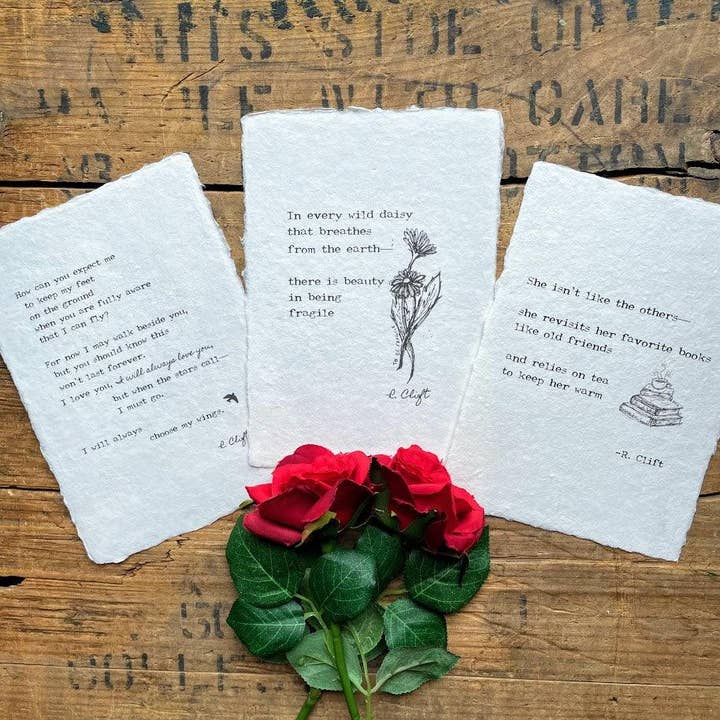 How can you expect me
to keep my feet
on the ground
when you are fully aware
that I can fly?
For now I may walk beside you,
but you should know this
won't last forever.
I love you, I will always love you,
but when the stars call—
I must go.
I will always choose my wings.
R. Clift
In every wild daisy
that breathes
from the earth—
there is beauty
in being
fragile
R. Clift
She isn't like the others—
she revisits her favorite books
like old friends
and relies on tea
to keep her warm
-R. Clift
THIS SIDE UP
WITH CARE